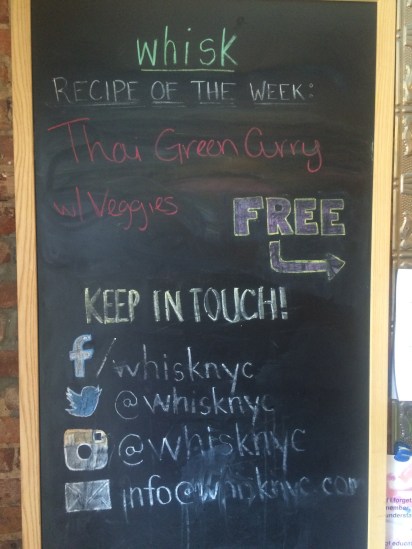 whisk
RECIPE OF THE WEEK:
Thai Green Curry
w/ Veggies
FREE
KEEP IN TOUCH!
f/whisknyc
@whisknyc
@whisknyc
info@whisknyc.com